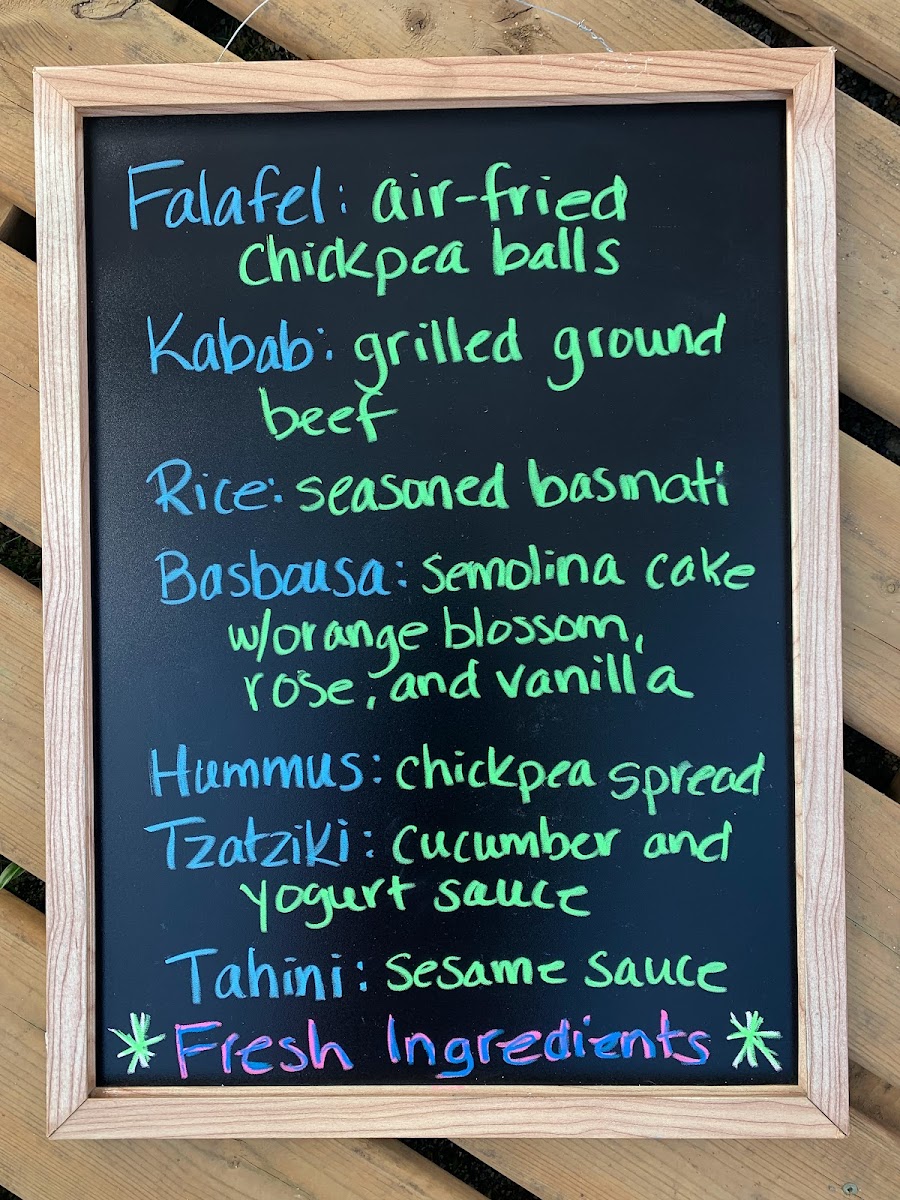 Falafel: air-fried
chickpea balls
Kabab: grilled ground
beef
Rice: seasoned basmati
Basbousa: semolina cake
w/orange blossom,
rose, and vanilla
Hummus: chickpea spread
Tzatziki: cucumber and
yogurt sauce
Tahini: sesame sauce
* Fresh Ingredients *